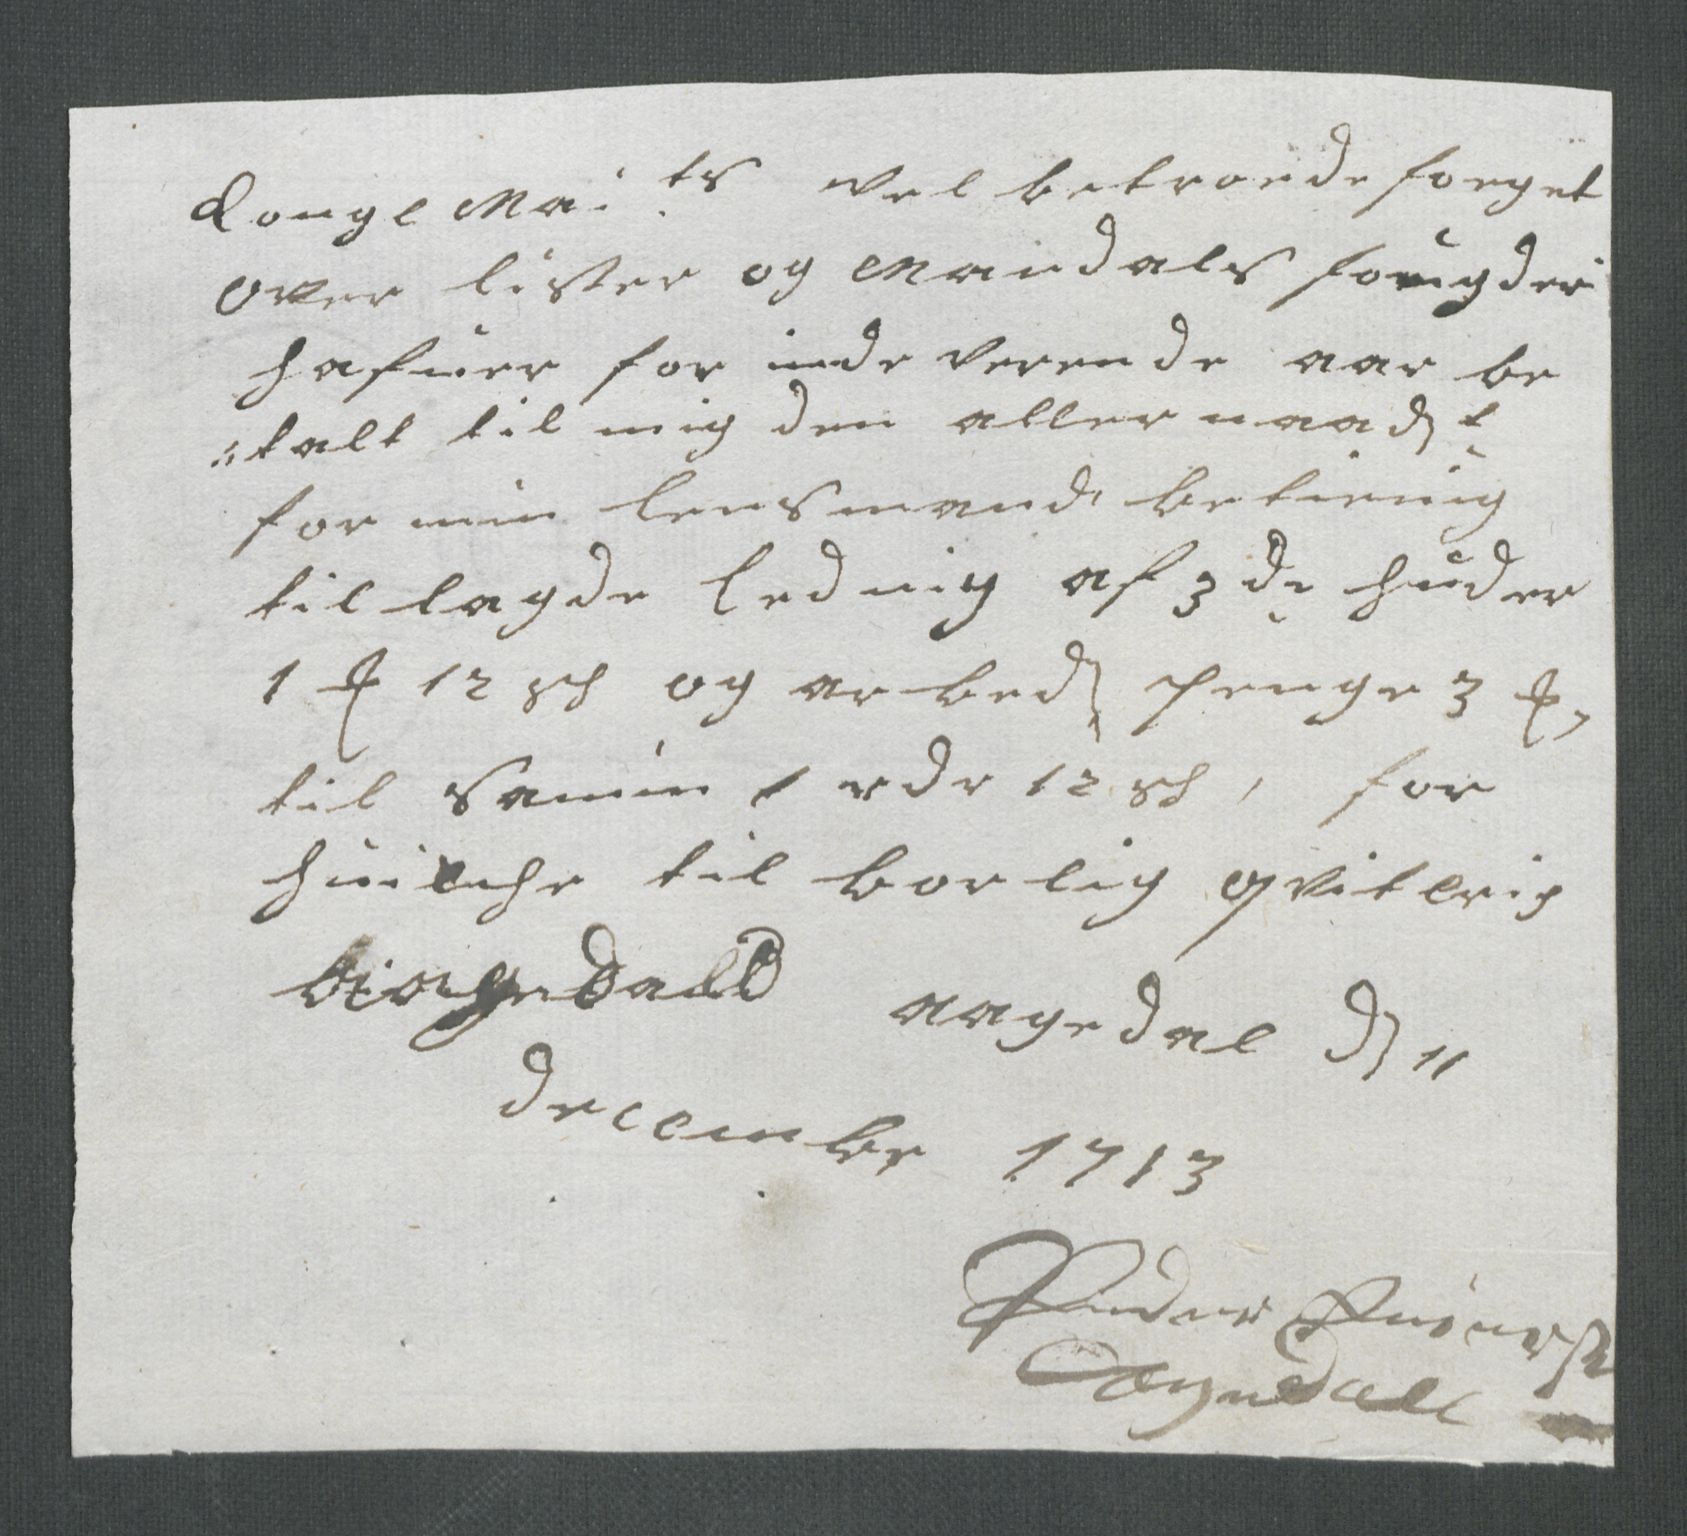 Kongl Mai:ts vel betroede foeget
over lister og Mandals fougderi
hafuer for inde verende aar be
:talt til mig den aller naadt
for min lensmand betienig
til lagde lednig af 3de huder
1 12 sch og arbeds penge 3
til samin 1 rdr 12 sch, for
huilche til borlig qvitterig
aagedal d 11
December 1713
Peder
Aagedall